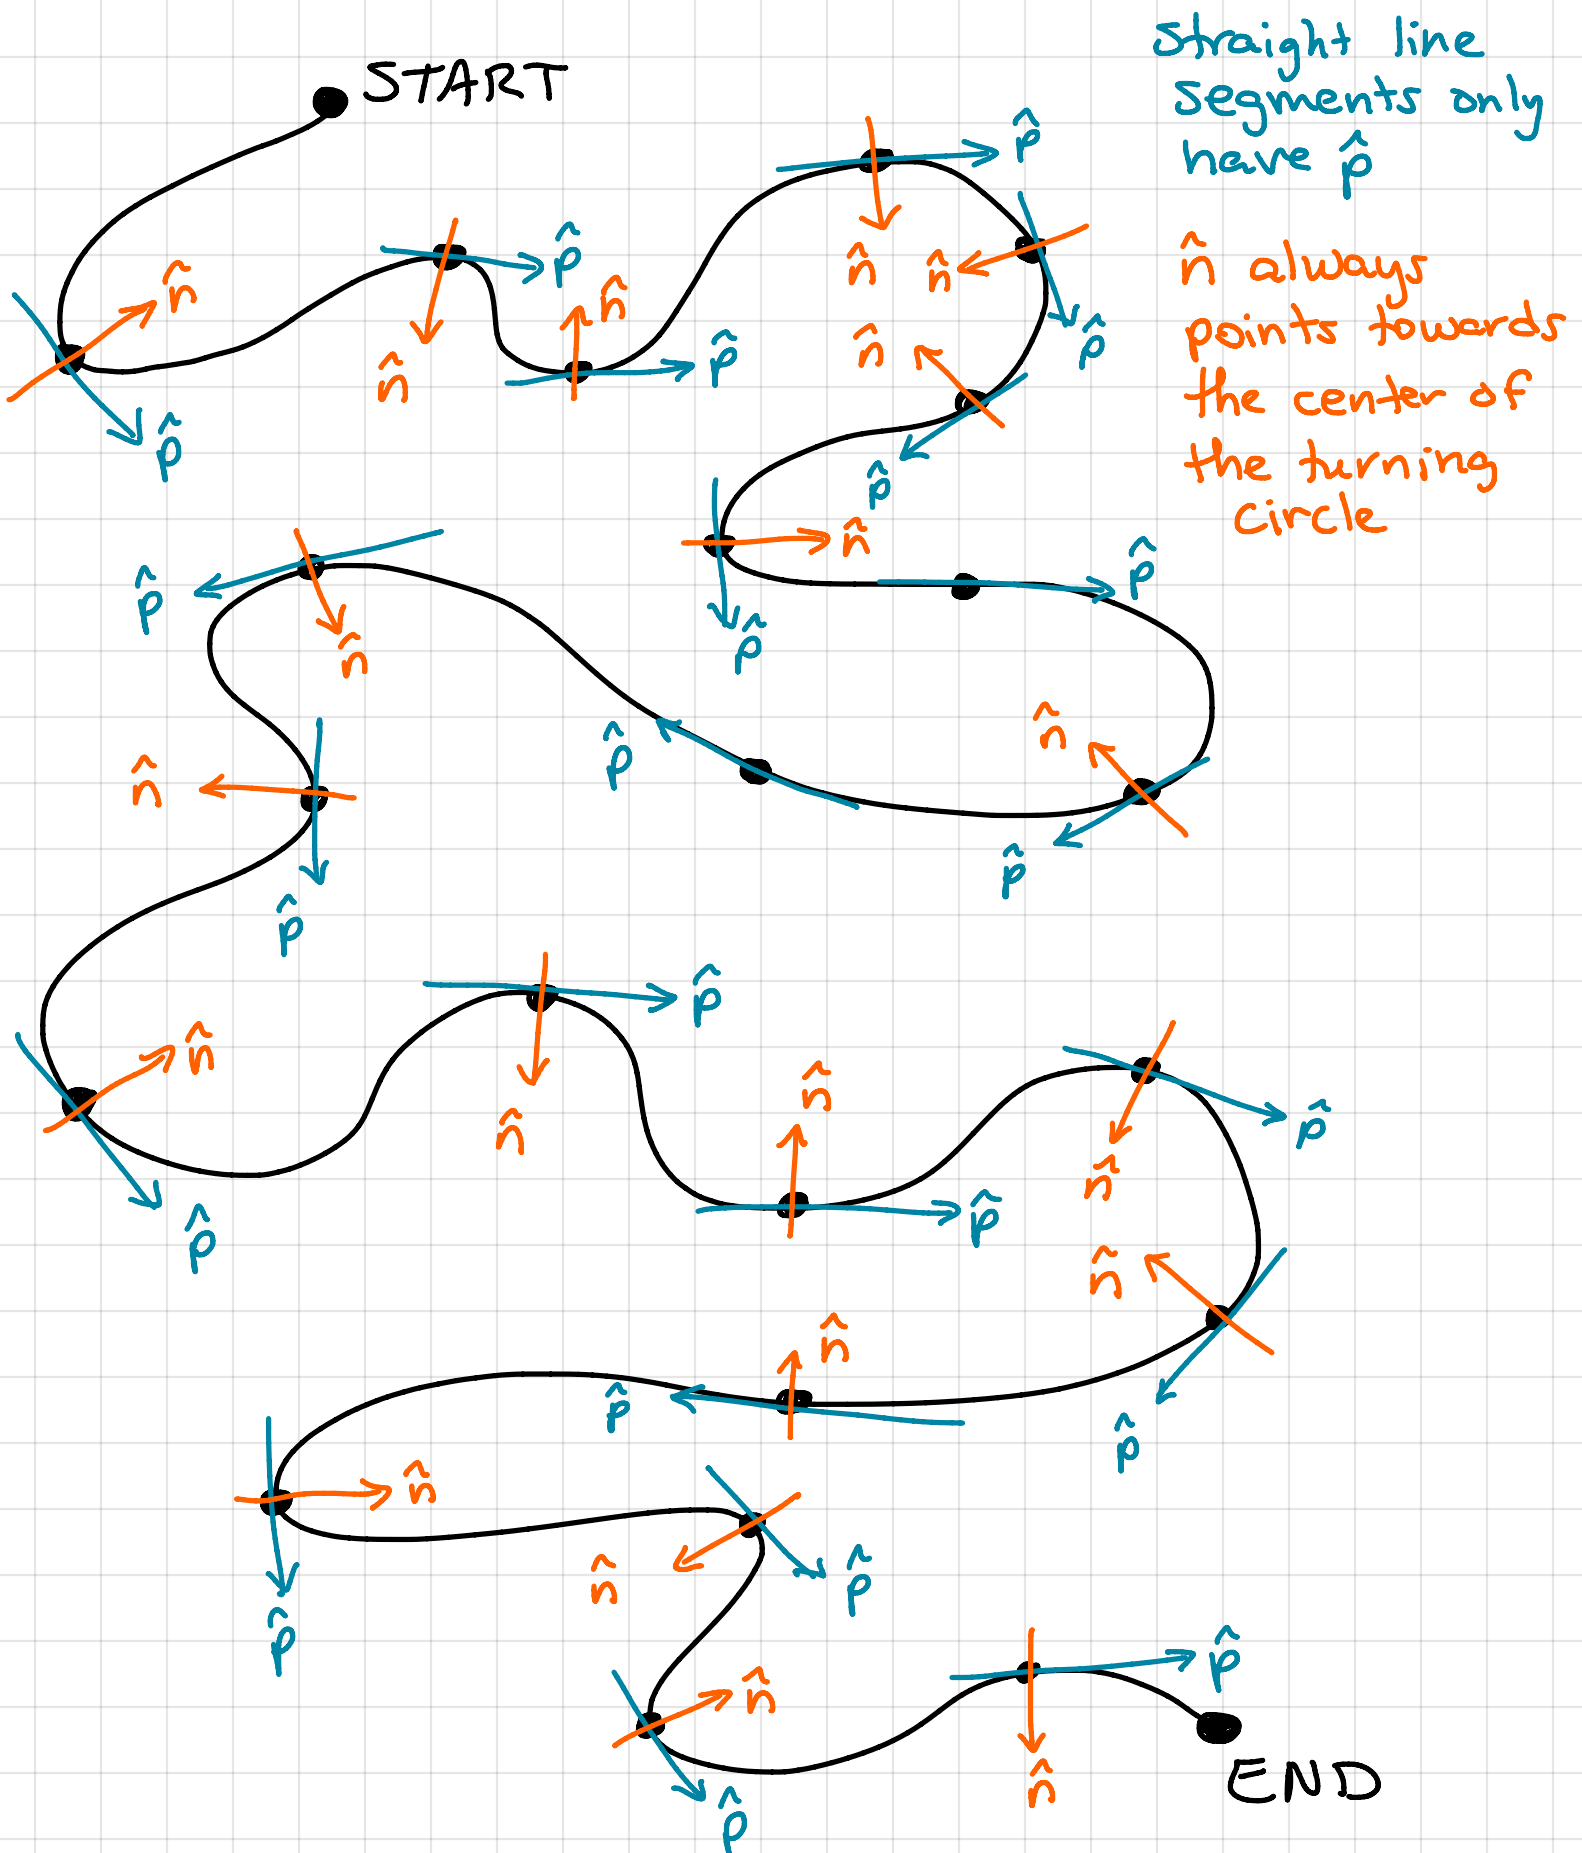 START
Straight line
segments only
have p̂
n̂ always
points towards
the center of
the turning
circle
n̂
p̂
p̂
n̂
n̂
p̂
p̂
n̂
n̂
p̂
n̂
p̂
n̂
p̂
p̂
n̂
p̂
p̂
p̂
n̂
n̂
p̂
n̂
p̂
p̂
n̂
n̂
p̂
p̂
n̂
n̂
p̂
n̂
p̂
n̂
p̂
n̂
p̂
n̂
p̂
p̂
n̂
END